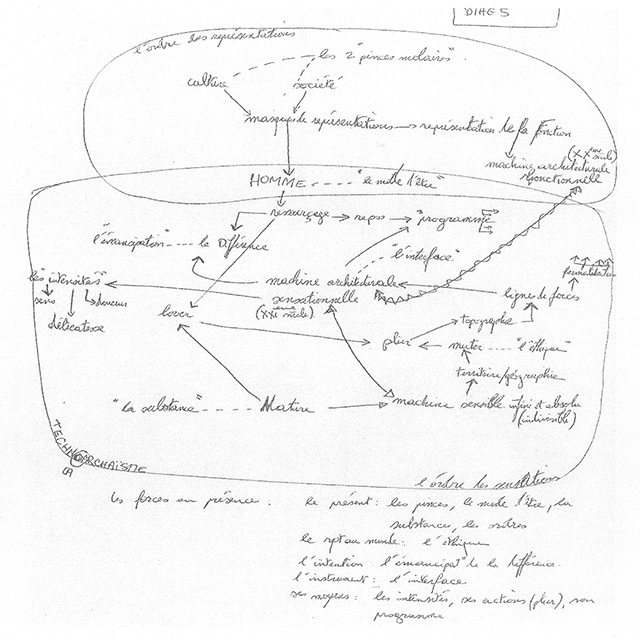 DIAG 5
l'ordre des représentations
les 2 "pinces molaires".
culture
société
masques de représentations → représentation de la Fonction
machine architecturale
fonctionnelle
(XXème siècle)
HOMME ---- "le mode d'être"
remorçage → repos → "programme"
"l'émancipation" ---- la Différence
"l'interface"
les "intensités"
machine architecturale
sensationnelle
(XXIème siècle)
lignes de forces
sens
douceur
délicatesse
lover
topographie
plier ← muter --- "l'éthique"
territoire/géographie
"la substance" ---- Nature → machine sensible infinie et absolue
(indivisible)
TECHNOARCHAÏSME
l'ordre des sensations
les forces en présence :
le présent : les pinces, le mode d'être, la
substance, les ordres
le rpt au monde : l'éthique
l'intention : l'émancipat° de la différence.
l'instrument : l'interface
ses moyens : les intensités, ses actions (plier), son
programme